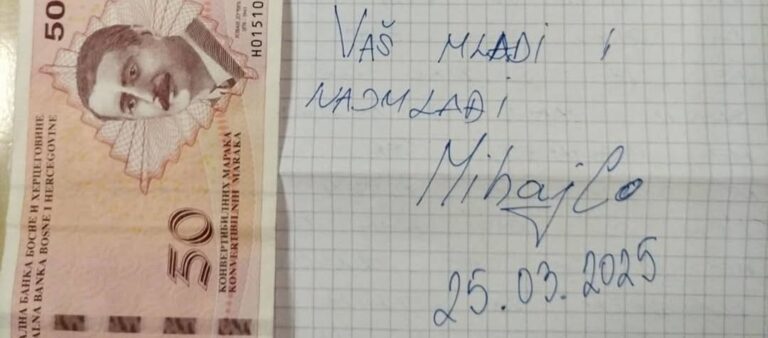 50
H01510
ЈОВАН ДУЧИЋ
АЛНА БАНКА БОСНЕ И ХЕРЦЕГОВИНЕ
ALNA BANKA BOSNE I HERCEGOVINE
50
КОНВЕРТИБИЛНИХ МАРАКА
KONVERTIBILNIH MARAKA
VAŠ MLAĐI I
NAJMLAĐI
Mihajlo
25.03.2025